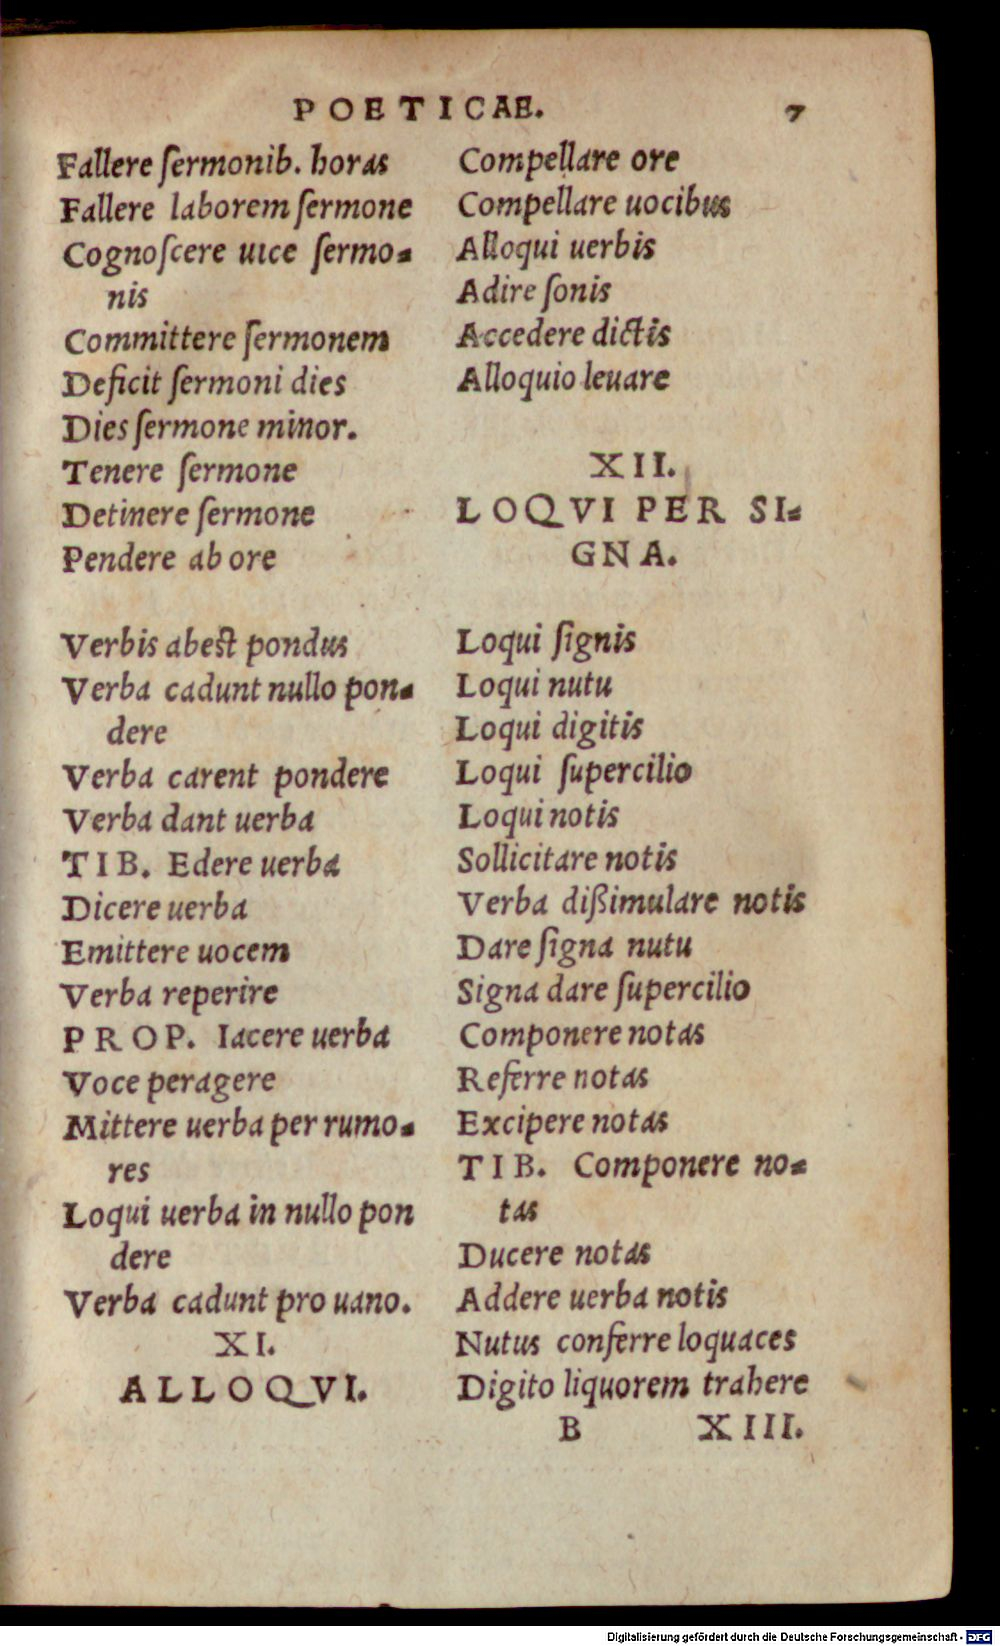 POETICAE. 7
Fallere ſermonib. horas
Fallere laborem ſermone
Cognoſcere uice ſermo-
nis
Committere ſermonem
Deficit ſermoni dies
Dies ſermone minor.
Tenere ſermone
Detinere ſermone
Pendere ab ore
Verbis abeſt pondus
Verba cadunt nullo pon-
dere
Verba carent pondere
Verba dant uerba
TIB. Edere uerba
Dicere uerba
Emittere uocem
Verba reperire
PROP. Iacere uerba
Voce peragere
Mittere uerba per rumo-
res
Loqui uerba in nullo pon
dere
Verba cadunt pro uano.
XI.
ALLOQVI.
Compellare ore
Compellare uocibus
Alloqui uerbis
Adire ſonis
Accedere dictis
Alloquio leuare
XII.
LOQVI PER SI-
GNA.
Loqui ſignis
Loqui nutu
Loqui digitis
Loqui ſupercilio
Loqui notis
Sollicitare notis
Verba dißimulare notis
Dare ſigna nutu
Signa dare ſupercilio
Componere notas
Referre notas
Excipere notas
TIB. Componere no-
tas
Ducere notas
Addere uerba notis
Nutus conferre loquaces
Digito liquorem trahere
B XIII.
Digitalisierung gefördert durch die Deutsche Forschungsgemeinschaft - DFG